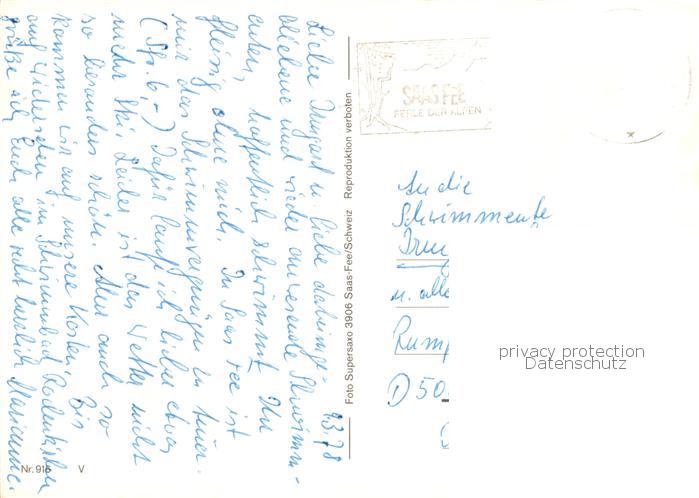 9.3.78
Liebe Irmgard u. liebe daheimge-
bliebene und wieder anwesende Schwimm-
enten, hoffentlich schwimmt Ihr
fleissig ohne mich. In Saas Fee ist
mir das Schwimmvergnügen zu teuer.
(SFr. 6,-) Dafür laufe ich lieber etwas
mehr Ski. Leider ist das Wetter nicht
so besonders schön. Aber auch so
kommen wir auf unsere Kosten. Bis
auf Wiedersehen im Schwimmbad Rodenkirchen
grüße ich Euch alle recht herzlich Marianne.
Nr. 915 V
Foto Supersaxo 3906 Saas-Fee/Schweiz Reproduktion verboten
SAAS FEE
PERLE DER ALPEN
An die
Schwimmente
Irm
u. alle
Rum
D 50
privacy protection
Datenschutz